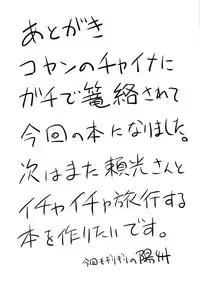 あとがき
コヤンのチャイナに
ガチで篭絡されて
今回の本になりました。
次はまた頼光さんと
イチャイチャ旅行する
本を作りたいです。
今回もギリギリの陽州